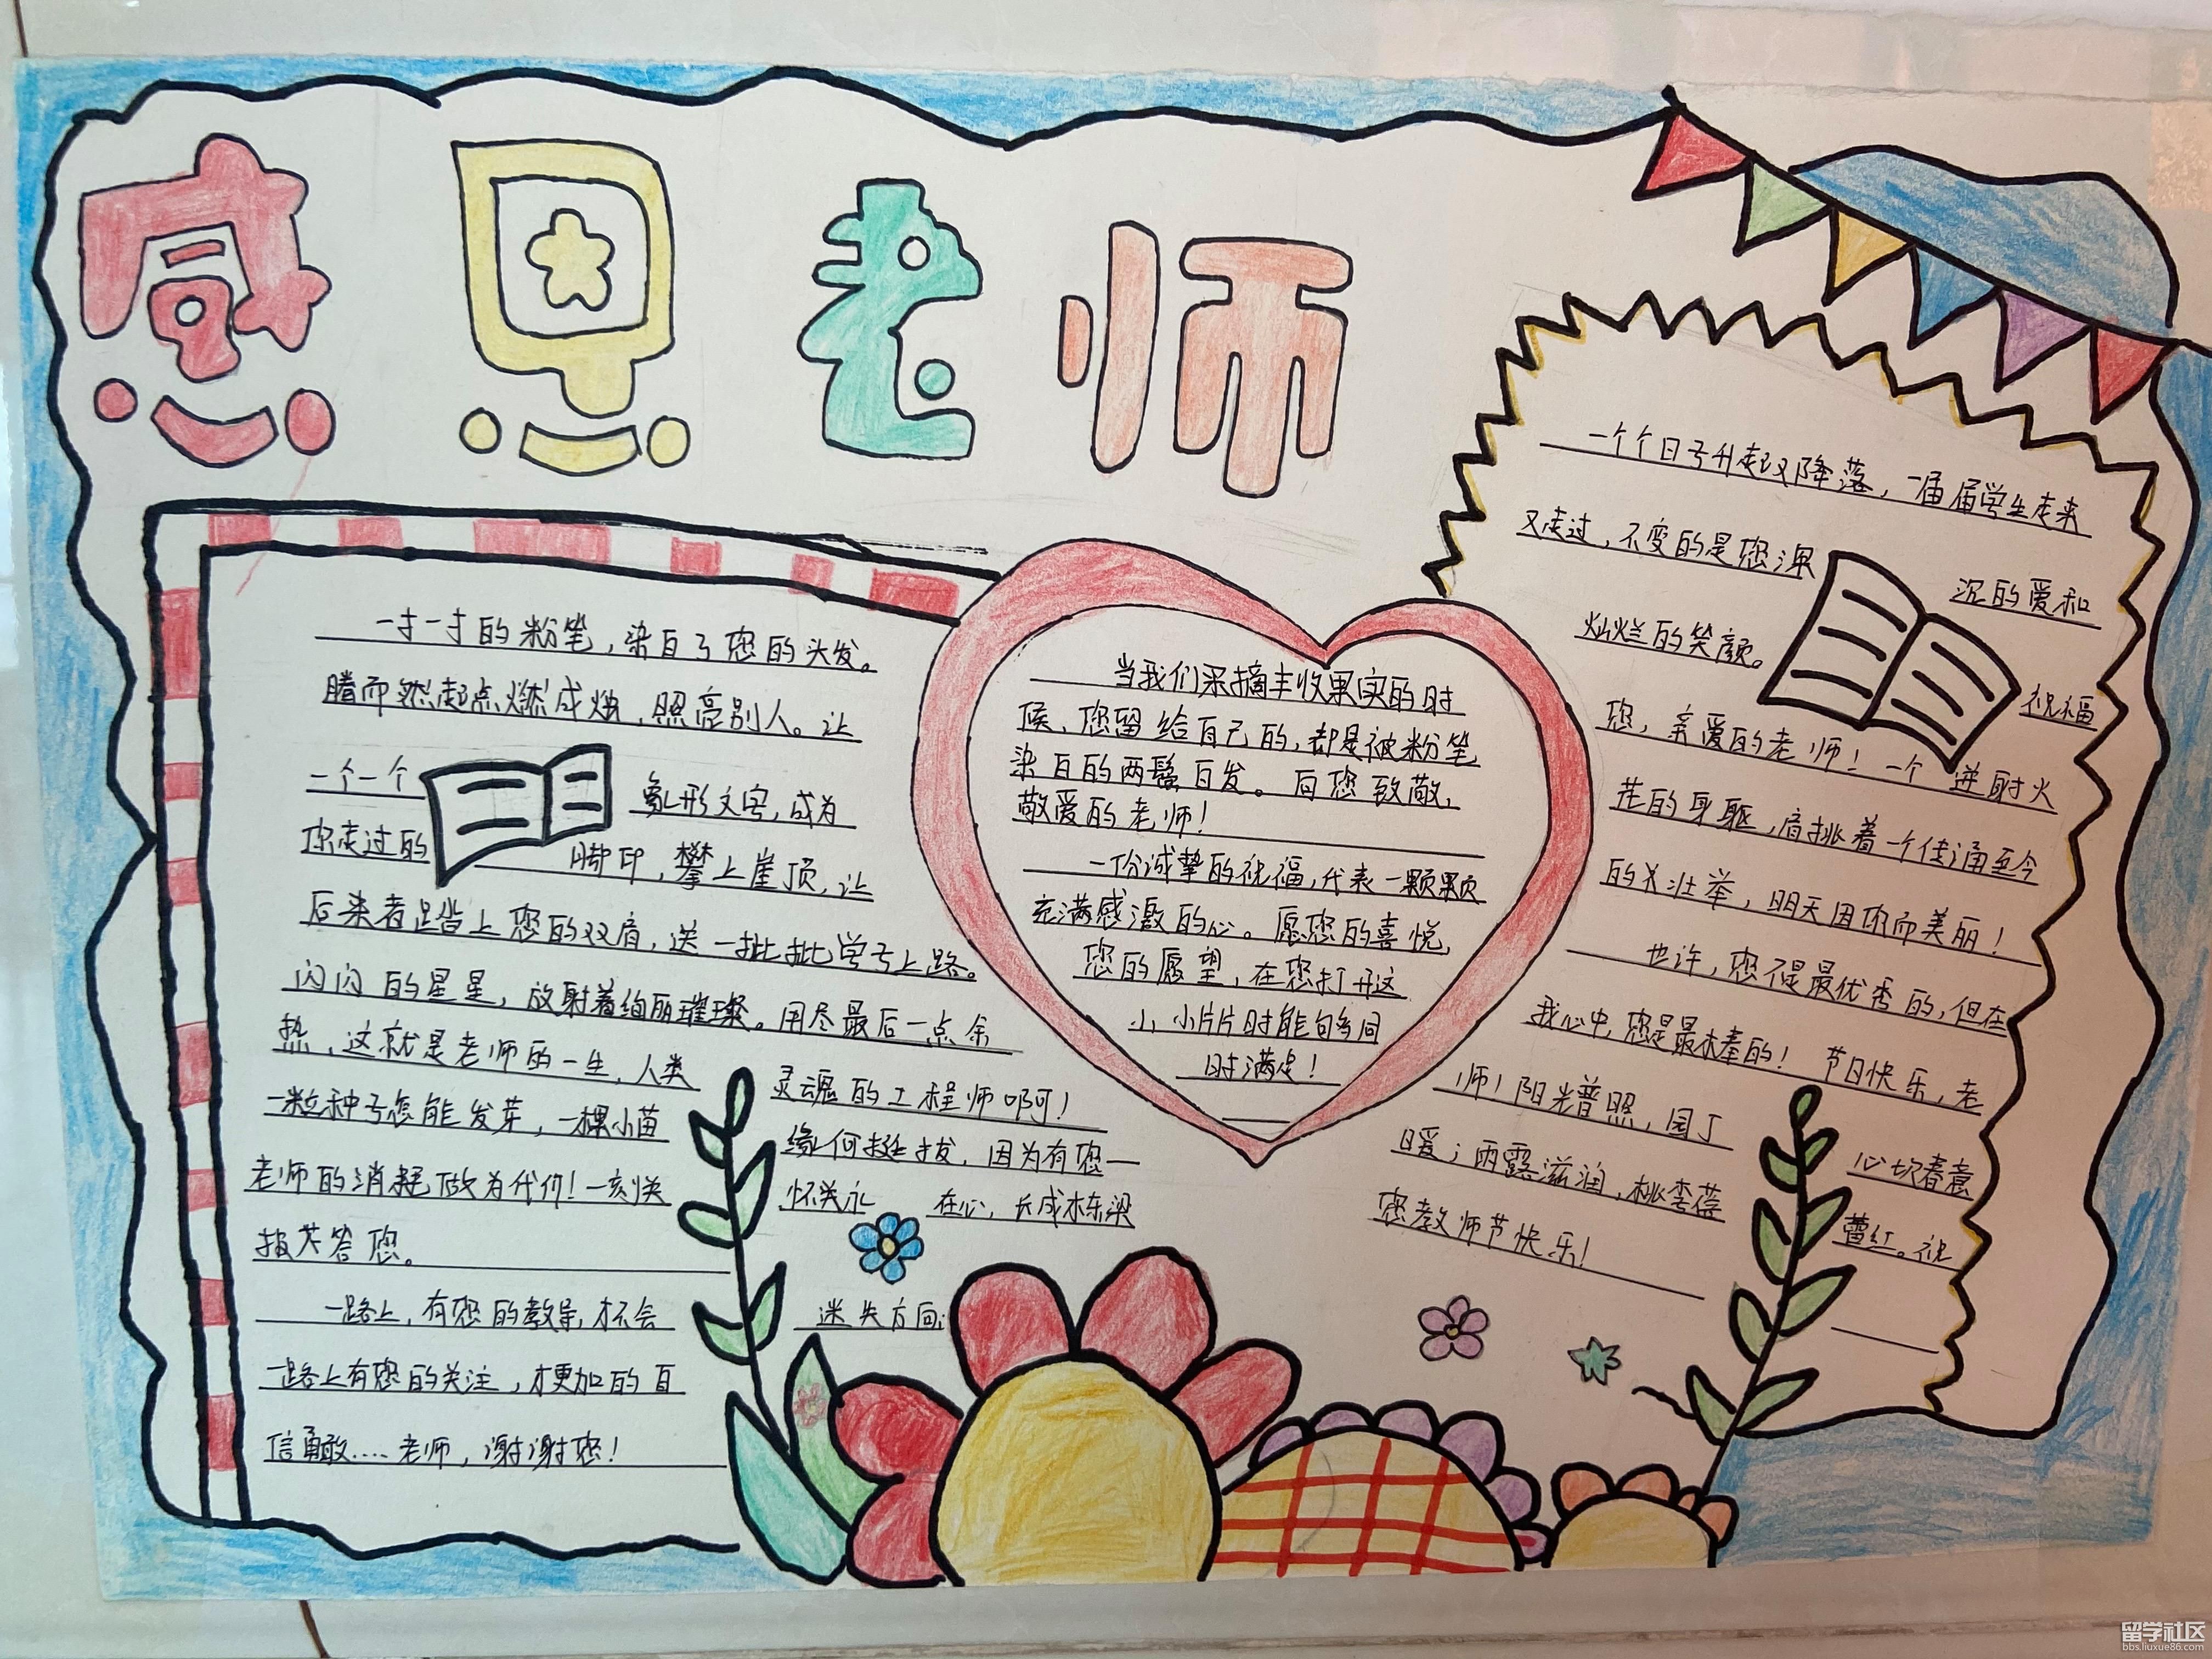 感恩老师
一寸一寸的粉笔，染白了您的头发。
腾而然起点燃成烛，照亮别人。让
一个一个 象形文字，成为
你走过的 脚印，攀上崖顶，让
后来者踏上您的双肩，送一批批学子上路。
闪闪的星星，放射着绚丽璀璨。用尽最后一点余
热，这就是老师的一生，人类
灵魂的工程师啊！
一粒种子怎能发芽，一棵小苗
缘何挺拔，因为有您一
老师的消耗做为代价！一刻快
怀关永 在心，长成栋梁
报答您。
一路上，有您的教导，才不会
迷失方向；
一路上有您的关注，才更加的自
信勇敢....老师，谢谢您！
当我们采摘丰收果实的时
候、您留给自己的，却是被粉笔
染白的两鬓白发。向您致敬，
敬爱的老师！
一份诚挚的祝福，代表一颗颗
充满感激的心。愿您的喜悦，
您的愿望，在您打开这
小小片片时能句多同
时满足！
一个个日子升起又降落，一届届学生走来
又走过，不变的是您深
沉的爱和
灿烂的笑颜。
祝福
您，亲爱的老师！一个 迸射火
花的身躯，肩挑着一个传诵至今
的 壮举，明天因你而美丽！
也许，您不是最优秀的，但在
我心中，您是最棒的！节日快乐，老
师！阳光普照，园丁
心切春意
暖；雨露滋润，桃李蓓
蕾红。祝
您教师节快乐！
留学社区
bbs.liuxue86.com